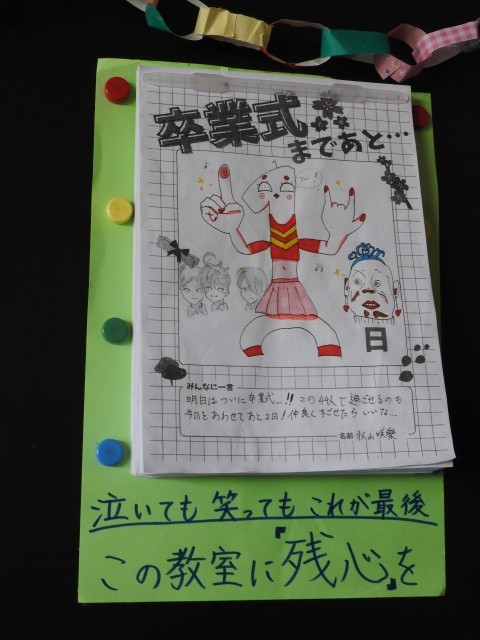 卒業式
まであと…
1
日
みんなに一言
明日はついに卒業式…!! この44人で過ごせるのも
今日をあわせてあと2日! 仲良くすごせたらいいな…
名前 秋山咲樂
泣いても 笑っても これが最後
この教室に『残心』を